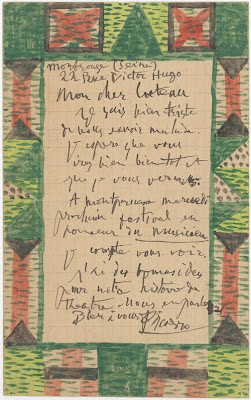 Montrouge (Seine)
22 Rue Victor Hugo
Mon cher Cocteau
Je suis bien triste
de vous savoir malade.
J'espere que vous
irez bien bientot et
que je vous verrai.
A montparnasse mercredi
prochain festival en
honneur du musicien
Je compte vous voir.
J'ai des bonnes idees
pour notre histoire de
theatre. Nous en parlerons
Bien à vous Picasso